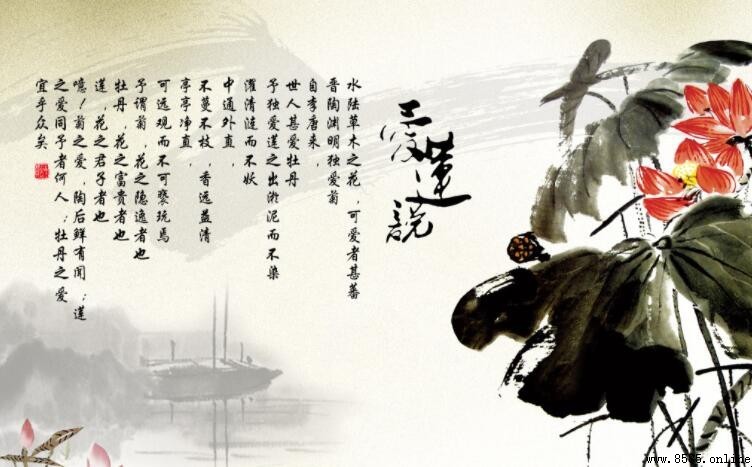 愛蓮説
水陆草木之花，可爱者甚蕃
晋陶渊明独爱菊
自李唐来，
世人甚爱牡丹
予独爱莲之出淤泥而不染
濯清涟而不妖
中通外直，
不蔓不枝，香远益清
亭亭净直，
可远观而不可亵玩焉
予谓菊，花之隐逸者也
牡丹，花之富贵者也
莲，花之君子者也
噫！菊之爱，陶后鲜有闻；莲
之爱同予者何人；牡丹之爱
宜乎众矣